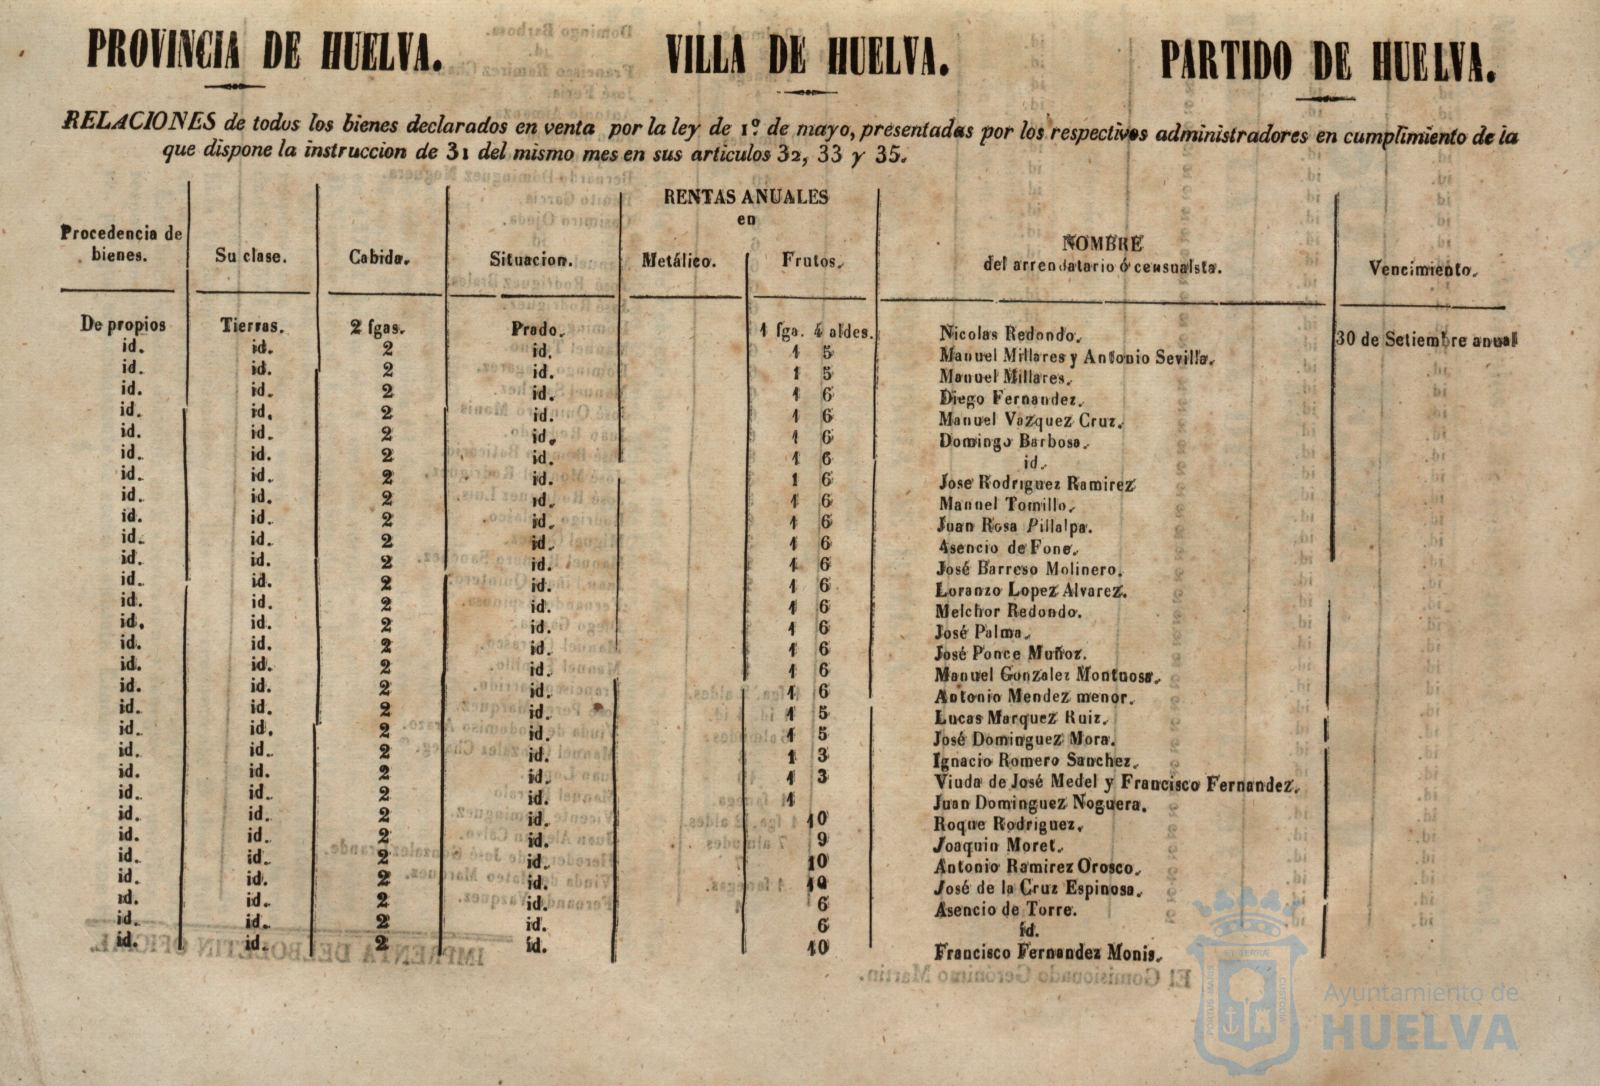 PROVINCIA DE HUELVA. VILLA DE HUELVA. PARTIDO DE HUELVA.
RELACIONES de todos los bienes declarados en venta por la ley de 1º de mayo, presentadas por los respectivos administradores en cumplimiento de la
que dispone la instruccion de 31 del mismo mes en sus articulos 32, 33 y 35.
RENTAS ANUALES
en
Procedencia de
bienes. Su clase. Cabida. Situacion. Metálico. Frutos. NOMBRE
del arrendatario ó censualsta. Vencimiento.
De propios Tierras. 2 fgas. Prado. 1 fga. 4 aldes. Nicolas Redondo. 30 de Setiembre anual
id. id. 2 id. 1 5 Manuel Millares y Antonio Sevilla.
id. id. 2 id. 1 5 Manuel Millares.
id. id. 2 id. 1 6 Diego Fernandez.
id. id. 2 id. 1 6 Manuel Vazquez Cruz.
id. id. 2 id. 1 6 Domingo Barbosa.
id. id. 2 id. 1 6 id.
id. id. 2 id. 1 6 Jose Rodriguez Ramirez
id. id. 2 id. 1 6 Manuel Tomillo.
id. id. 2 id. 1 6 Juan Rosa Pillalpa.
id. id. 2 id. 1 6 Asencio de Fone.
id. id. 2 id. 1 6 José Barreso Molinero.
id. id. 2 id. 1 6 Loranzo Lopez Alvarez.
id. id. 2 id. 1 6 Melchor Redondo.
id. id. 2 id. 1 6 José Palma.
id. id. 2 id. 1 6 José Ponce Muñoz.
id. id. 2 id. 1 6 Manuel Gonzalez Montuosa.
id. id. 2 id. 1 6 Antonio Mendez menor.
id. id. 2 id. 1 5 Lucas Marquez Ruiz.
id. id. 2 id. 1 5 José Dominguez Mora.
id. id. 2 id. 1 3 Ignacio Romero Sanchez.
id. id. 2 id. 1 3 Viuda de José Medel y Francisco Fernandez.
id. id. 2 id. 1 Juan Dominguez Noguera.
id. id. 2 id. 10 Roque Rodriguez.
id. id. 2 id. 9 Joaquin Moret.
id. id. 2 id. 10 Antonio Ramirez Orosco.
id. id. 2 id. 10 José de la Cruz Espinosa.
id. id. 2 id. 6 Asencio de Torre.
id. id. 2 id. 6 id.
id. id. 2 id. 10 Francisco Fernandez Monis.
Ayuntamiento de
HUELVA